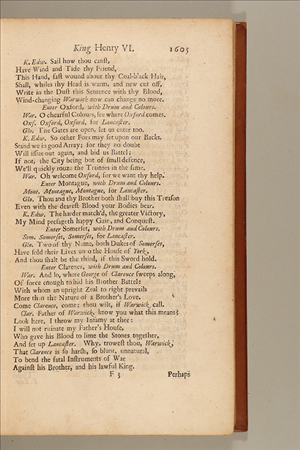 King Henry VI. 1605
K. Edw. Sail how thou canst,
Have Wind and Tide thy Friend,
This Hand, fast wound about thy Coal-black Hair,
Shall, whiles thy Head is warm, and new cut off,
Write in the Dust this Sentence with thy Blood,
Wind-changing Warwick now can change no more.
Enter Oxford, with Drum and Colours.
War. O chearful Colours, see where Oxford comes.
Oxf. Oxford, Oxford, for Lancaster.
Glo. The Gates are open, let us enter too.
K. Edw. So other Foes may set upon our Backs.
Stand we in good Array; for they no doubt
Will issue out again, and bid us Battel:
If not, the City being but of small defence,
We'll quickly rouze the Traitors in the same.
War. Oh welcome Oxford, for we want thy help.
Enter Montague, with Drum and Colours.
Mont. Montague, Montague, for Lancaster.
Glo. Thou and thy Brother both shall buy this Treason
Even with the dearest Blood your Bodies bear.
K. Edw. The harder match'd, the greater Victory,
My Mind presageth happy Gain, and Conquest.
Enter Somerset, with Drum and Colours.
Som. Somerset, Somerset, for Lancaster.
Glo. Two of thy Name, both Dukes of Somerset,
Have sold their Lives unto the House of York,
And thou shalt be the third, if this Sword hold.
Enter Clarence, with Drum and Colours.
War. And lo, where George of Clarence sweeps along,
Of force enough to bid his Brother Battel:
With whom an upright Zeal to right prevails
More than the Nature of a Brother's Love.
Come Clarence, come; thou wilt, if Warwick call.
Clar. Father of Warwick, know you what this means?
Look here, I throw my Infamy at thee:
I will not ruinate my Father's House,
Who gave his Blood to lime the Stones together,
And set up Lancaster. Why, trowest thou, Warwick,
That Clarence is so harsh, so blunt, unnatural,
To bend the fatal Instruments of War
Against his Brother, and his lawful King.
F 3 Perhaps